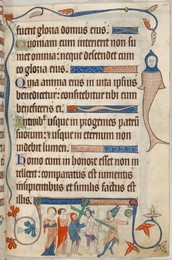 fuerit gloria domus eius.
Quoniam cum interierit non su
met omnia: neque descendet cū
eo gloria eius.
Quia anima eius in uita ipsius
benedicetur: confitebitur tibi cum
benefeceris ei.
Introibit usque in progenies patrū
suorum: et usque in eternum non
uidebit lumen.
Homo cum in honore esset non in
tellexit: comparatus est iumentis
insipientibus et similis factus est
illis.